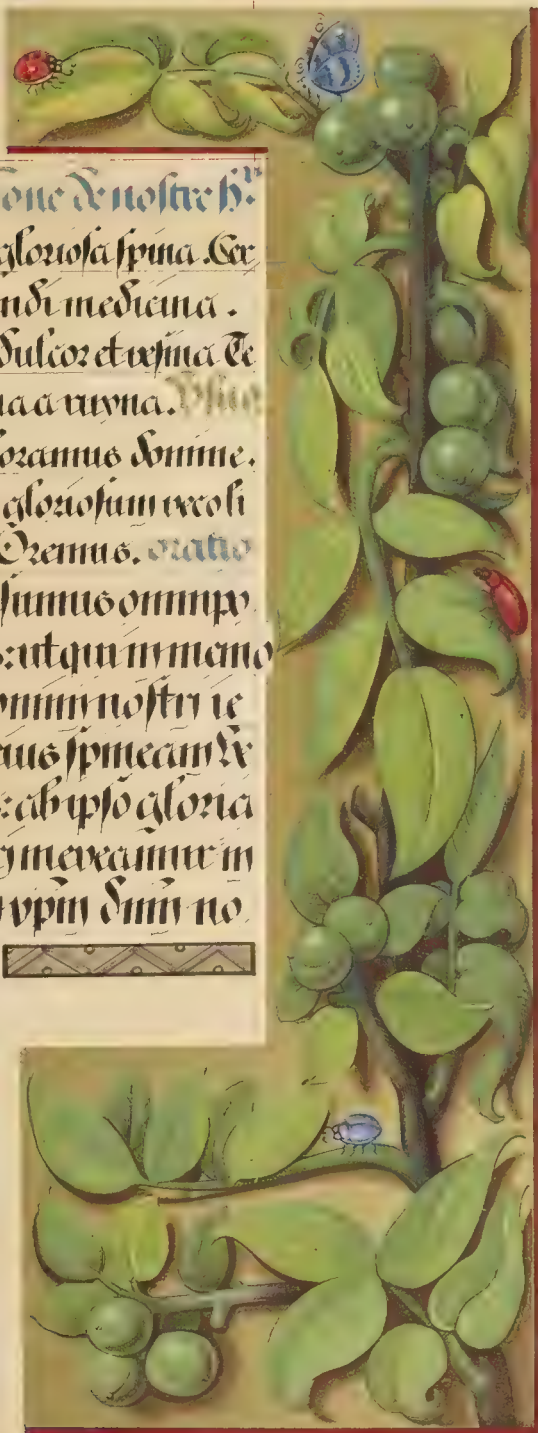 de nostre Sr
gloriosa spina. Cor
ndi medicina.
dulcor et
na a ruyna.
oramus domine.
gloriosum recoli
Oremus. oratio
sumus omnipo
ut qui in memo
omini nostri ie
eius spineam
ab ipso gloria
mereamur in
xpm dnm no